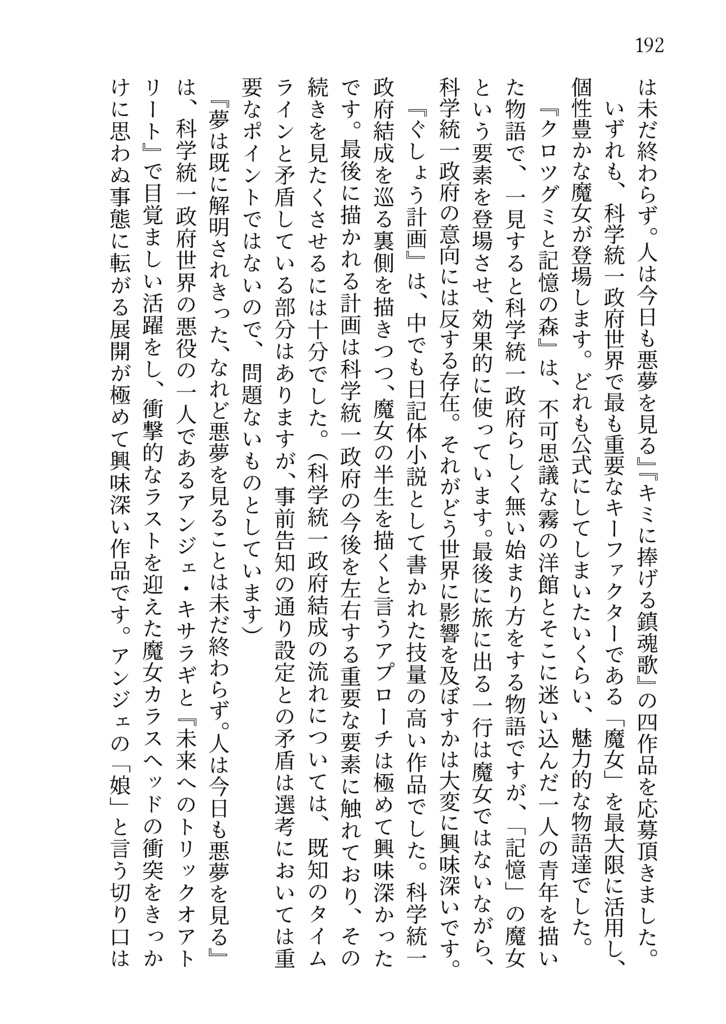 192
は未だ終わらず。人は今日も悪夢を見る』『キミに捧げる鎮魂歌』の四作品を応募頂きました。
いずれも、科学統一政府世界で最も重要なキーファクターである「魔女」を最大限に活用し、
個性豊かな魔女が登場します。どれも公式にしてしまいたいくらい、魅力的な物語達でした。
『クロツグミと記憶の森』は、不可思議な霧の洋館とそこに迷い込んだ一人の青年を描い
た物語で、一見すると科学統一政府らしく無い始まり方をする物語ですが、「記憶」の魔女
という要素を登場させ、効果的に使っています。最後に旅に出る一行は魔女ではないながら、
科学統一政府の意向には反する存在。それがどう世界に影響を及ぼすかは大変に興味深いです。
『ぐしょう計画』は、中でも日記体小説として書かれた技量の高い作品でした。科学統一
政府結成を巡る裏側を描きつつ、魔女の半生を描くと言うアプローチは極めて興味深かった
です。最後に描かれる計画は科学統一政府の今後を左右する重要な要素に触れており、その
続きを見たくさせるには十分でした。（科学統一政府結成の流れについては、既知のタイム
ラインと矛盾している部分はありますが、事前告知の通り設定との矛盾は選考においては重
要なポイントではないので、問題ないものとしています）
『夢は既に解明されきった、なれど悪夢を見ることは未だ終わらず。人は今日も悪夢を見る』
は、科学統一政府世界の悪役の一人であるアンジェ・キサラギと『未来へのトリックオアト
リート』で目覚ましい活躍をし、衝撃的なラストを迎えた魔女カラスヘッドの衝突をきっか
けに思わぬ事態に転がる展開が極めて興味深い作品です。アンジェの「娘」と言う切り口は